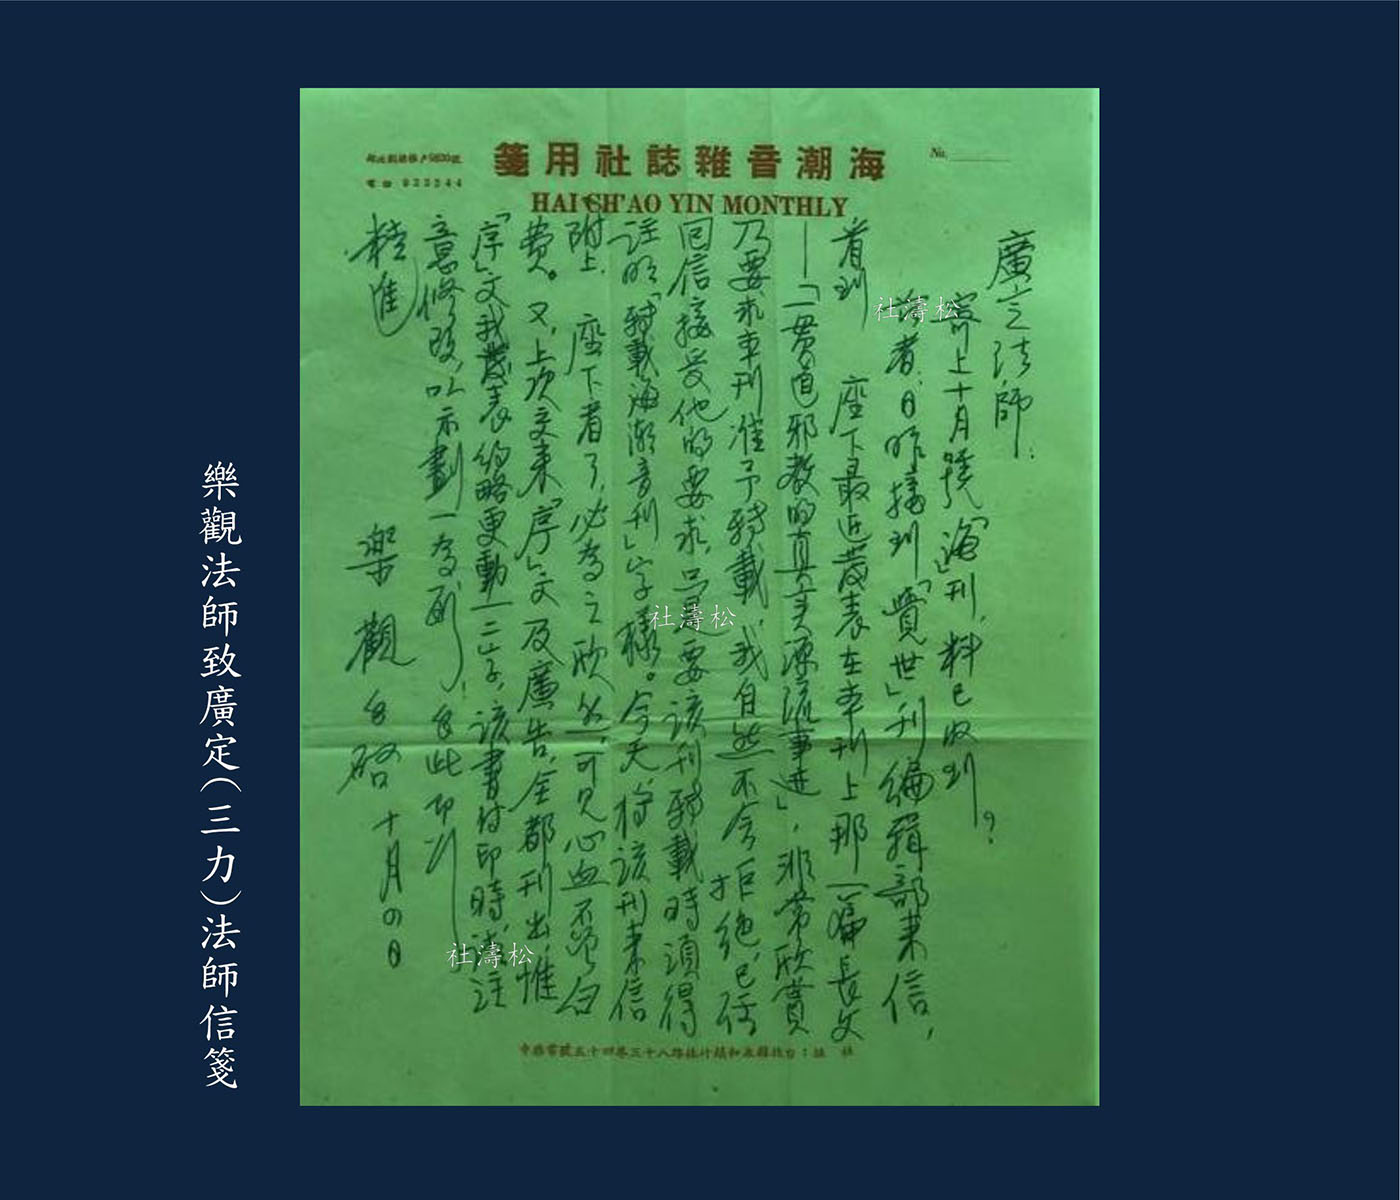 海潮音雜誌社用箋
HAI CH'AO YIN MONTHLY
No.
電話 933244
廣定法師：
寄上十月號「海」刊，料已收到？
啓者，日昨接到「覺世」刊編輯部來信，
看到 座下最近發表在本刊上那一篇長文
——「一貫道邪教的真正源流事迹」，非常欣賞
乃要求本刊准予轉載，我自然不會拒絕，已任
回信接受他的要求，只是要該刊轉載時須得
註明「轉載海潮音刊」字樣。今天，將該刊來信
附上 座下看了，必為之欣然，可見心血不曾白
費。又，上次交來「序」文及廣告，全都刊出，惟
「序」文我發表約略更動一二字，該書付印時，請注
意修改，以示劃一為荷！ 此即頌
精進
樂觀 合啓 十月四日
社址：台北縣永和鎮竹林路八十三巷四十五號常樂寺
樂觀法師致廣定（三力）法師信箋
松濤社
松濤社
松濤社